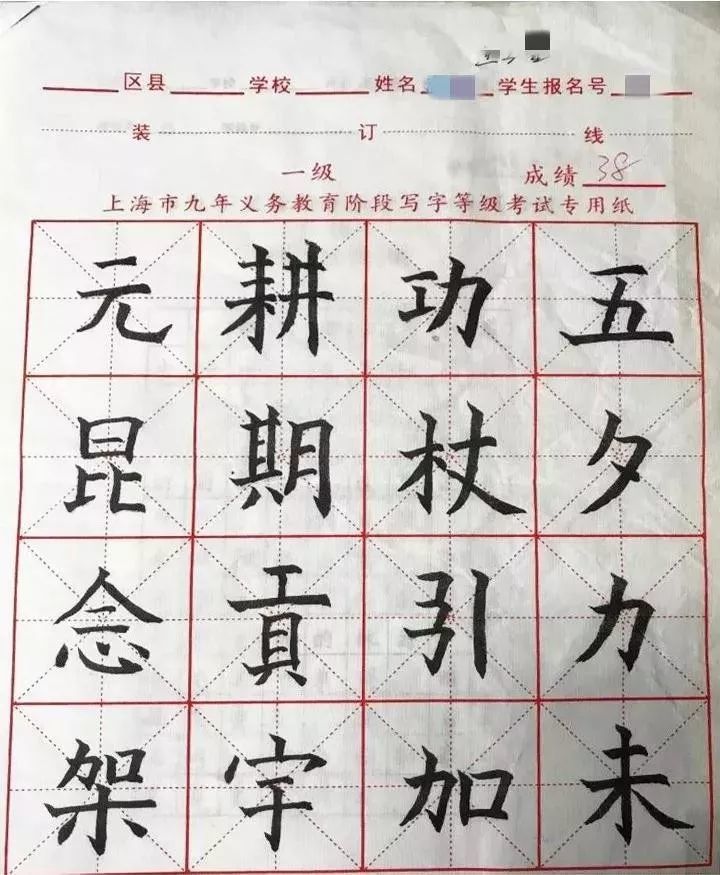 区县 学校 姓名 学生报名号
装 订 线
一级 成绩 38
上海市九年义务教育阶段写字等级考试专用纸
元 耕 功 五
昆 期 杖 夕
念 貢 引 力
架 宇 加 未